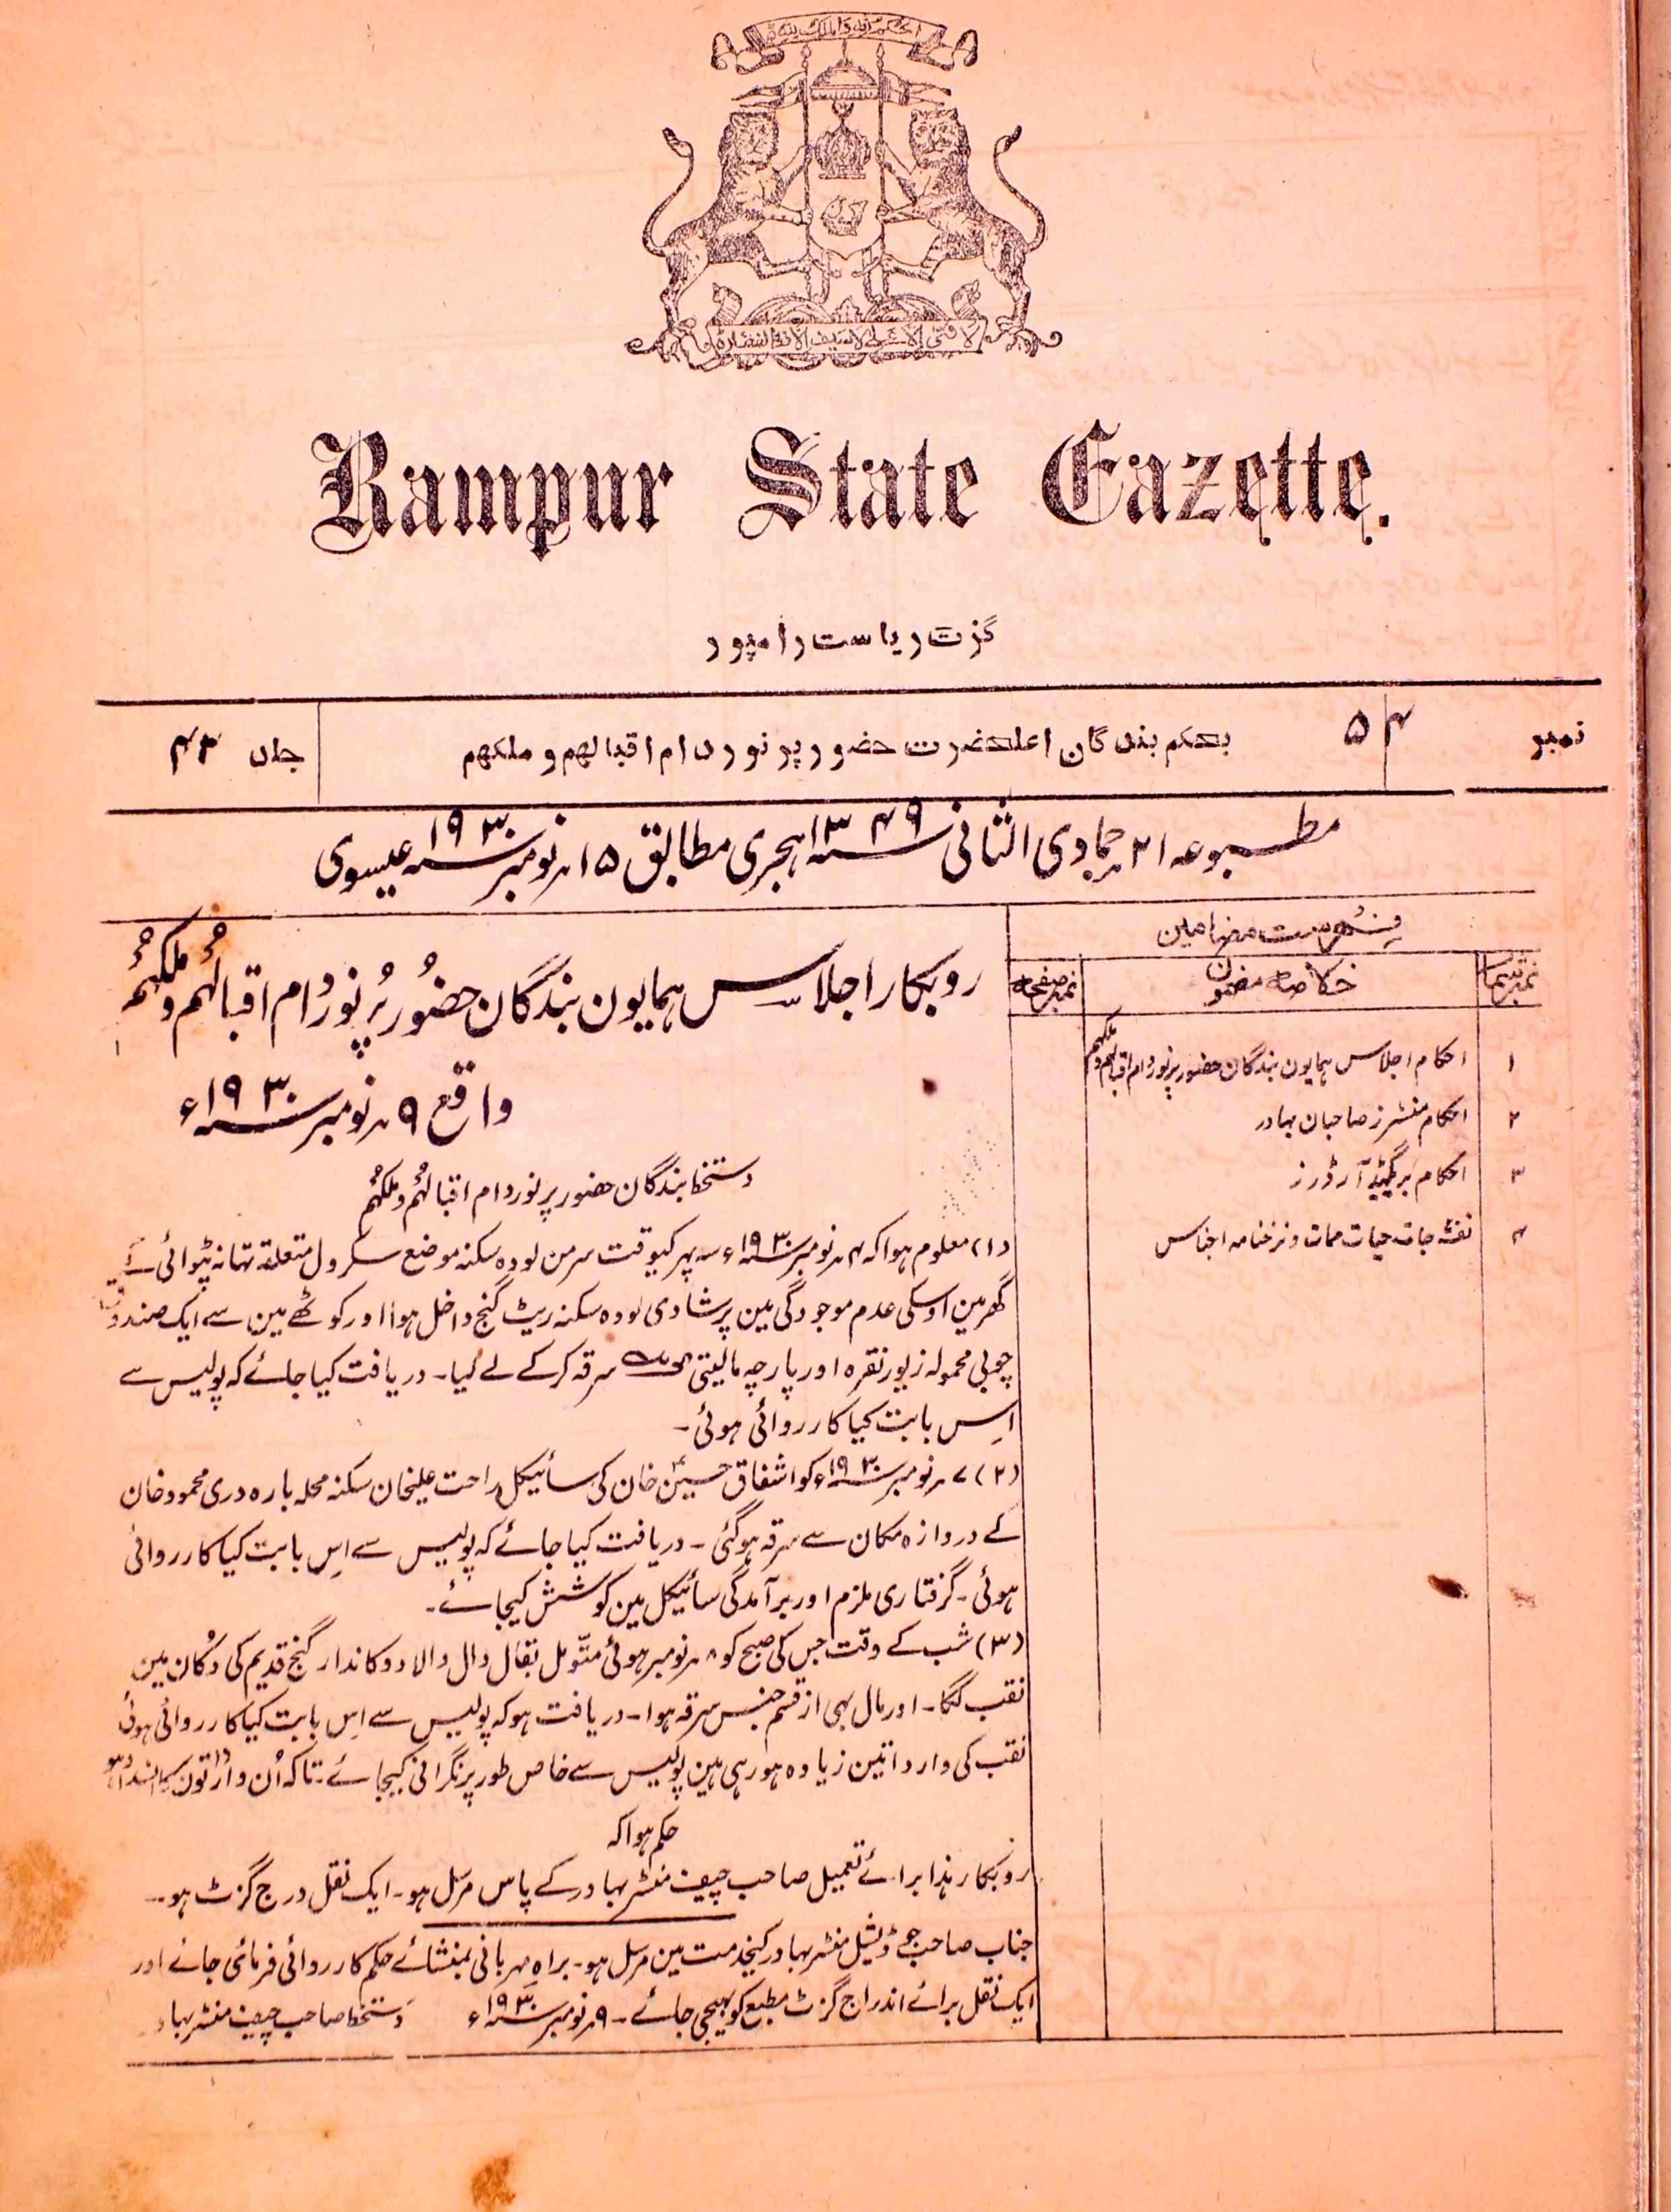 الحکم للہ والملک للہ
لا فتی الا علی لا سیف الا ذوالفقار
Rampur State Gazette.
گزت ریاست رامپور
نمبر ۵۴
بحکم بندگان اعلحضرت حضور پر نور دام اقبالہم و ملکہم
جلد ۴۳
مطبوعہ ۲۱ جمادی الثانی سنہ ۱۳۴۹ ہجری مطابق ۱۵ نومبر سنہ ۱۹۳۰ عیسوی
فہرست مضامین
نمبر شمار
خلاصہ مضمون
نمبر صفحہ
۱ احکام اجلاس ہمایون بندگان حضور پرنور دام اقبالہم و ملکہم
۲ احکام منسٹرز صاحبان بہادر
۳ احکام بریگیڈ آرڈرز
۴ نقشہ جات حیات ممات و نرخنامہ اجناس
روبکار اجلاس ہمایون بندگان حضُور پُر نور دام اقبالہُم و ملکہُم
واقع ۹ نومبر سنہ ۱۹۳۰ء
دستخط بندگان حضور پر نور دام اقبالہُم و ملکہُم
(۱) معلوم ہوا کہ ۴ نومبر سنہ ۱۹۳۰ء سہ پہر کیوقت سرمن لودہ سکنہ موضع سکرول متعلقہ تہانہ پٹوائی کے
گھر مین اوسکی عدم موجودگی مین پرشادی لودہ سکنہ ریٹ گنج داخل ہوا اور کوٹھے مین سے ایک صندوق
چوبی محمولہ زیور نقرہ اور پارچہ مالیتی سرقہ کرکے لے گیا۔ دریافت کیا جائے کہ پولیس سے
اِس بابت کیا کارروائی ہوئی۔
(۲) ۷ نومبر سنہ ۱۹۳۰ء کو اشفاق حسین خان کی سائیکل راحت علیخان سکنہ محلہ بارہ دری محمود خان
کے دروازہ مکان سے سرقہ ہوگئی۔ دریافت کیا جائے کہ پولیس سے اِس بابت کیا کارروائی
ہوئی۔ گرفتاری ملزم اور برآمدگی سائیکل مین کوشش کیجائے۔
(۳) شب کے وقت جس کی صبح کو ۸ نومبر ہوئی متّومل بقال دال والا دوکاندار گنج قدیم کی دُکان مین
نقب لگا۔ اور مال بہی از قسم جنس سرقہ ہوا۔ دریافت ہو کہ پولیس سے اِس بابت کیا کارروائی ہوئی
نقب کی وارداتین زیادہ ہو رہی ہین پولیس سے خاص طور پر نگرانی کیجائے۔ تاکہ اُن وارداتون کا انسداد ہو
حکم ہوا کہ
روبکار ہذا برائے تعمیل صاحب چیف منسٹر بہادر کے پاس مرسل ہو۔ ایک نقل درج گزٹ ہو۔
جناب صاحب جوڈیشل منسٹر بہادر کیخدمت مین مرسل ہو۔ براہ مہربانی بمنشائے حکم کارروائی فرمائی جائے اور
ایک نقل برائے اندراج گزٹ مطبع کو بھیجی جائے۔ ۹ نومبر سنہ ۱۹۳۰ء دستخط صاحب چیف منسٹر بہادر